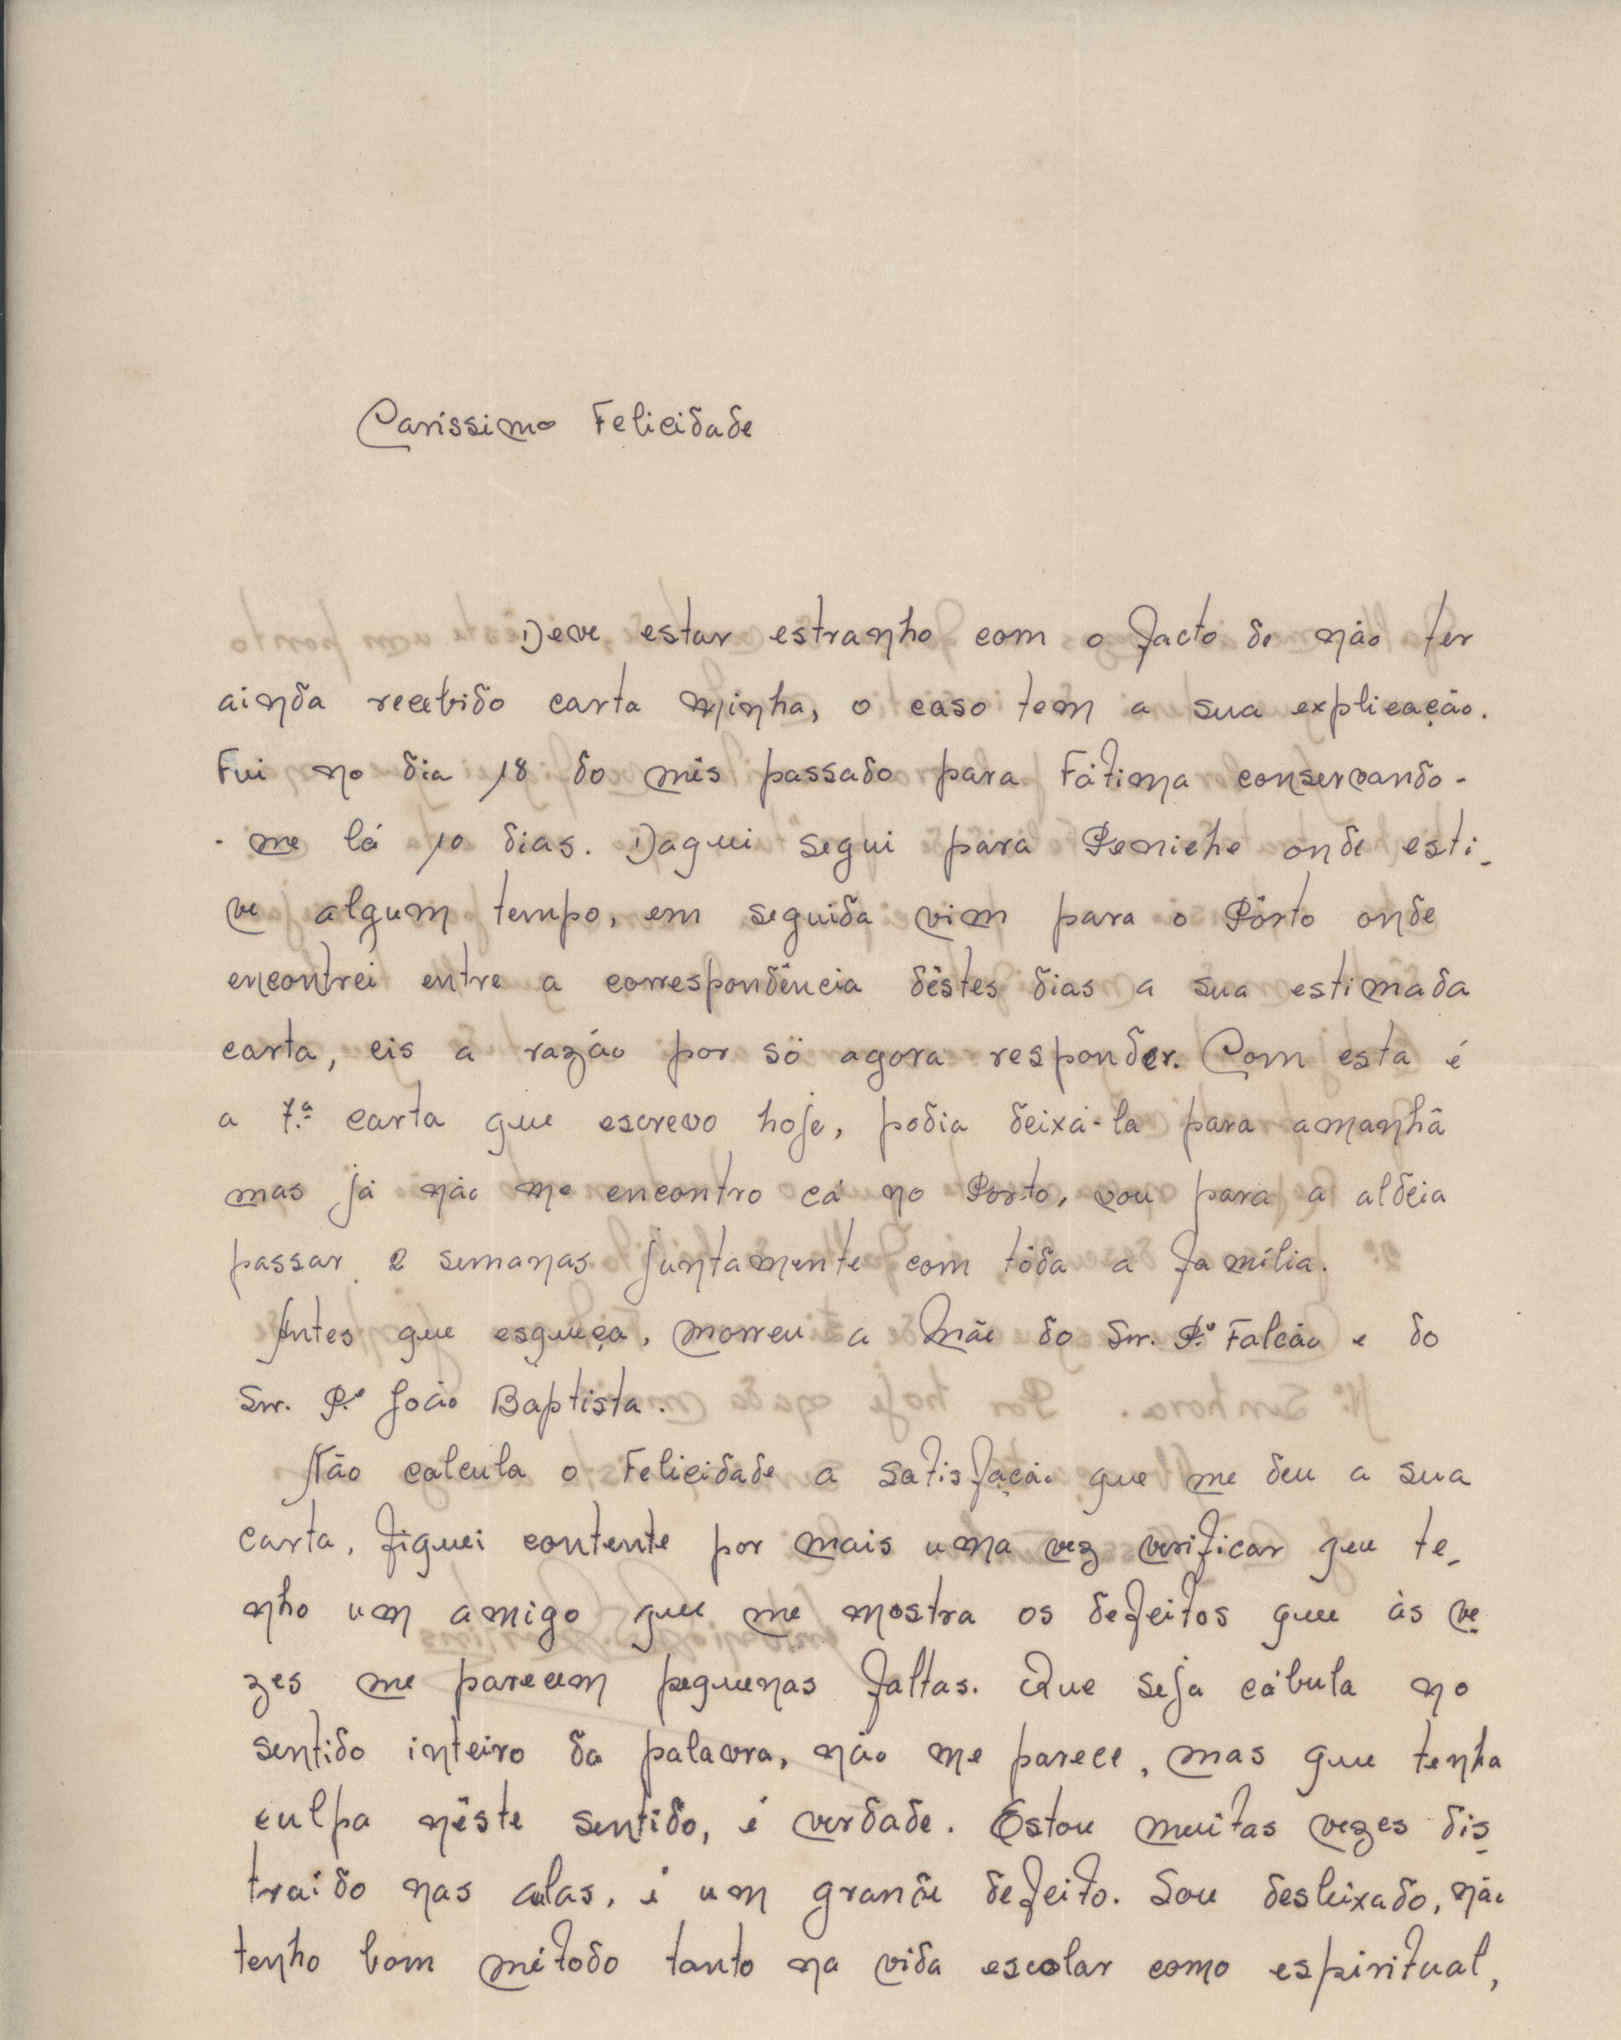 Caríssimo Felicidade
Deve estar estranho com o facto de não ter
ainda recebido carta minha, o caso tem a sua explicação.
Fui no dia 18 do mês passado para Fátima conservando-
-me lá 10 dias. Daqui segui para Peniche onde esti-
ve algum tempo, em seguida vim para o Pôrto onde
encontrei entre a correspondência dêstes dias a sua estimada
carta, eis a razão por só agora responder. Com esta é
a 7.ª carta que escrevo hoje, podia deixá-la para amanhã
mas já não me encontro cá no Porto, vou para a aldeia
passar 2 semanas juntamente com tôda a família.
Antes que esqueça, morreu a Mãe do Snr. P.e Falcão e do
Snr. P.e João Baptista.
Não calcula o Felicidade a satisfação que me deu a sua
carta, fiquei contente por mais uma vez verificar que te-
nho um amigo que me mostra os defeitos que às ve
zes me parecem pequenas faltas. Que seja cábula no
sentido inteiro da palavra, não me parece, mas que tenha
culpa nêste sentido, é verdade. Estou muitas vezes dis-
traído nas aulas, é um grande defeito. Sou desleixado, não
tenho bom método tanto na vida escolar como espiritual,